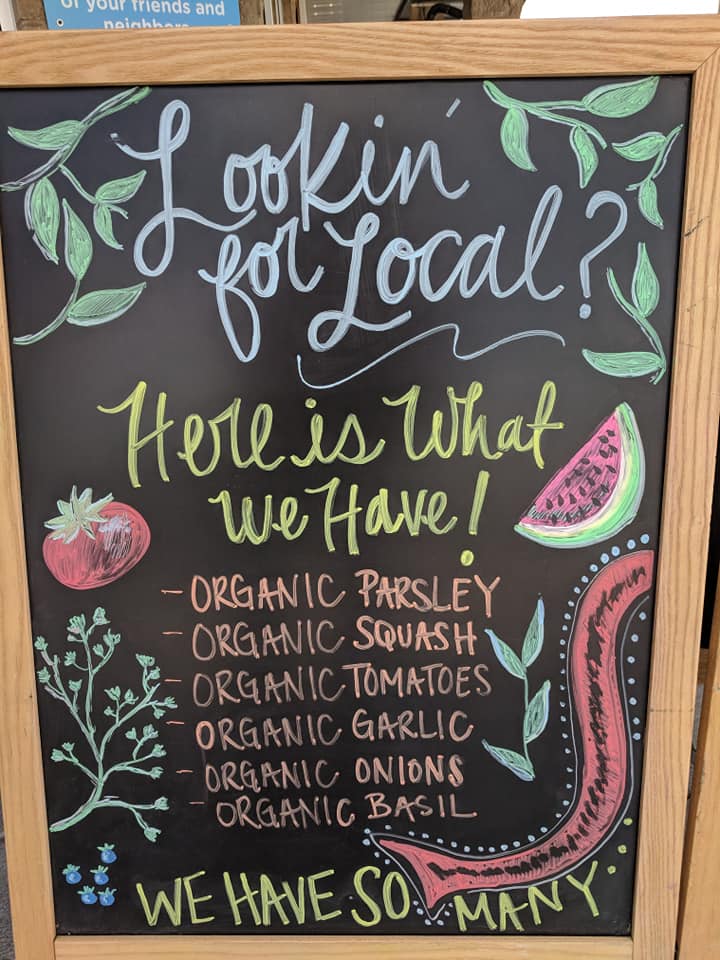 of your friends and
neighbors
Lookin'
for Local?
Here is What
we Have!
- ORGANIC PARSLEY
- ORGANIC SQUASH
- ORGANIC TOMATOES
- ORGANIC GARLIC
- ORGANIC ONIONS
- ORGANIC BASIL
WE HAVE SO MANY